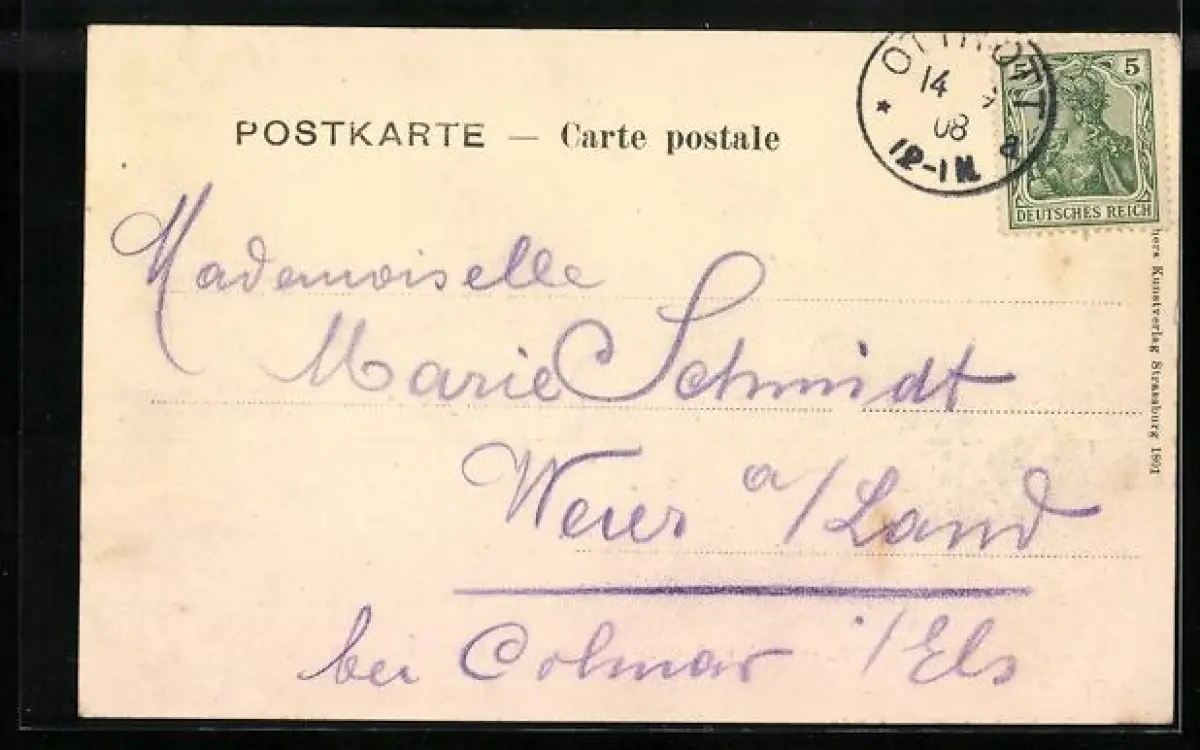 POSTKARTE — Carte postale
OTTROTT
14
08
12-1N.
a
5 5
DEUTSCHES REICH
Kunstverlag Strassburg 1901
Mademoiselle
Marie Schmidt
Weier a/Land
bei Colmar i/Els